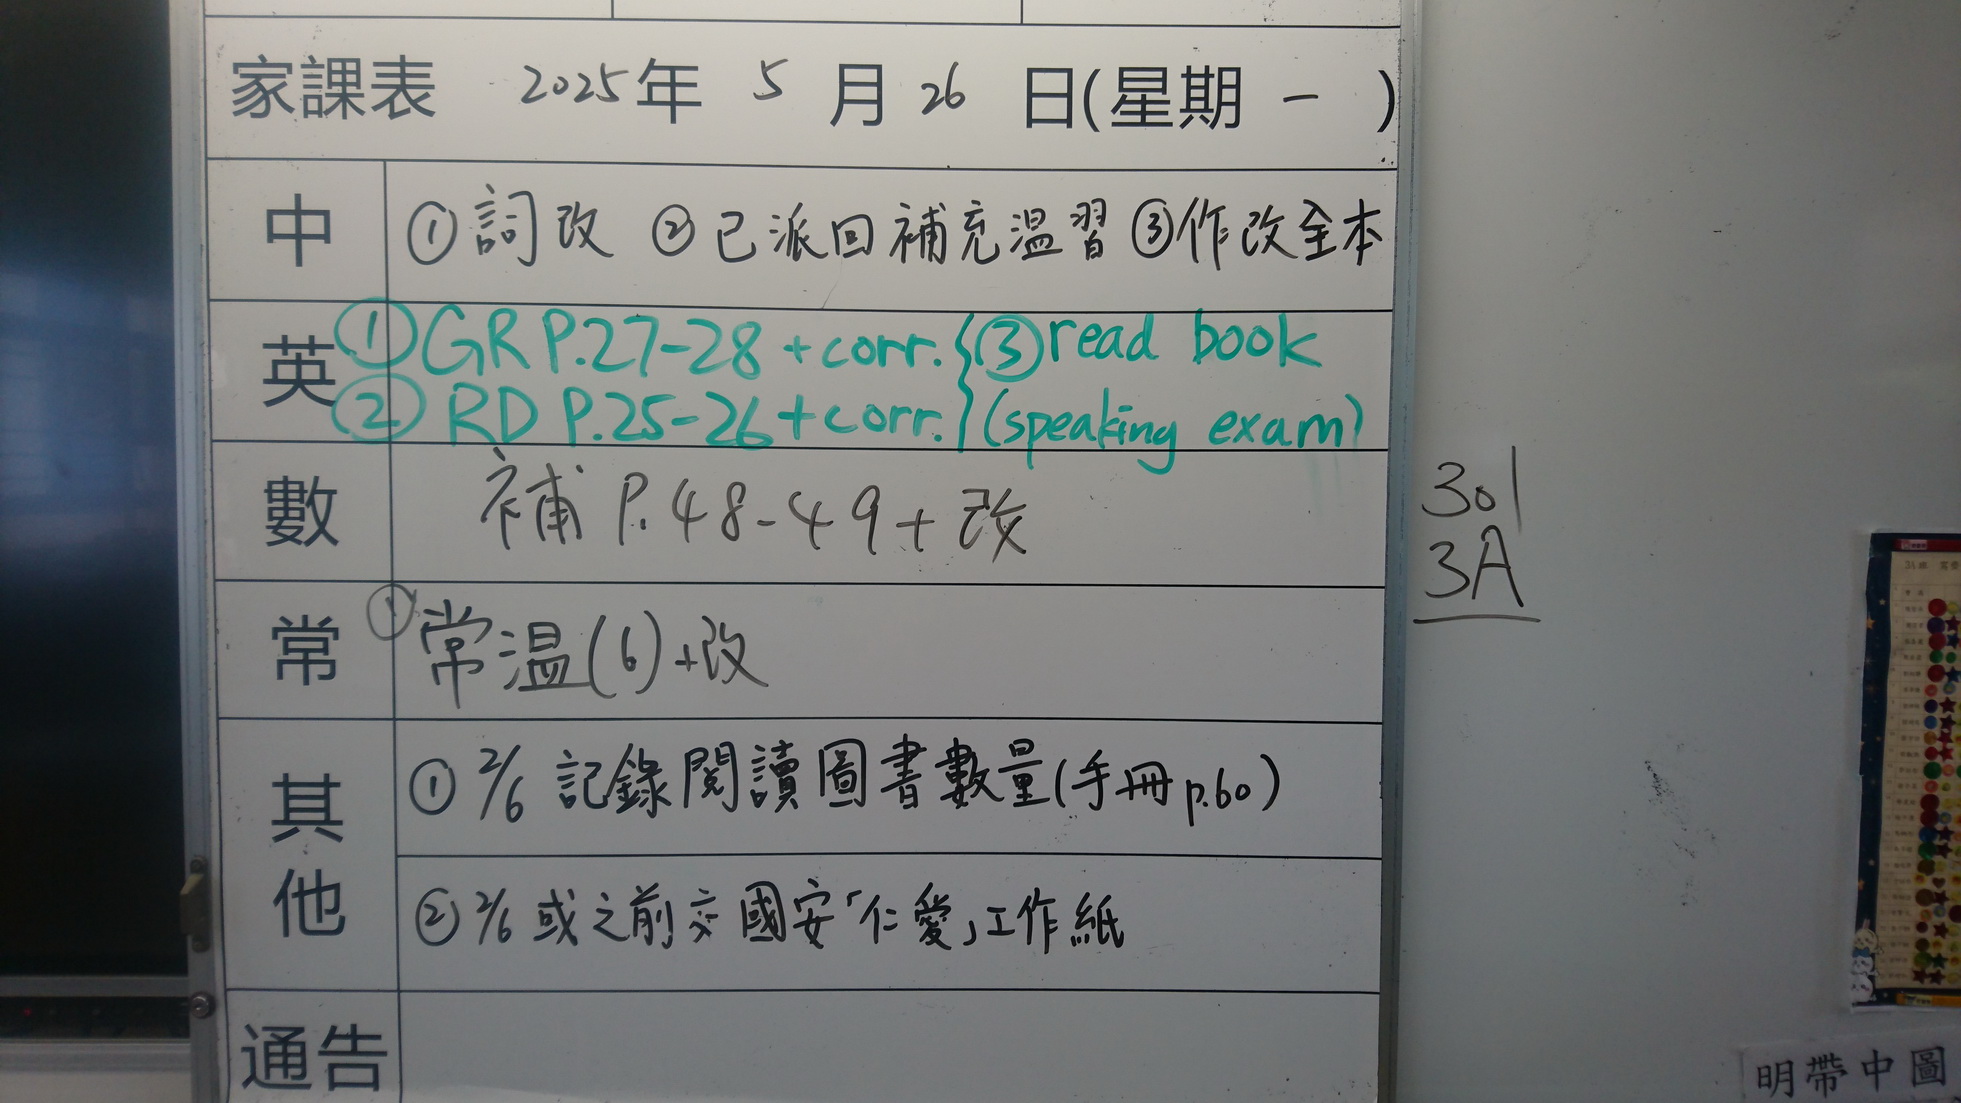 家課表 2025年 5月 26日(星期一)
中 ①詞改 ②已派回補充溫習 ③作改全本
英 ①GR P.27-28 + corr. } ③read book
②RD P.25-26 + corr. } (speaking exam)
數 補 P.48-49 + 改
常 ①常溫(6)+改
其他 ① 2/6 記錄閱讀圖書數量(手冊 p.60)
② 2/6 或之前交國安「仁愛」工作紙
通告
301
3A
明帶中圖